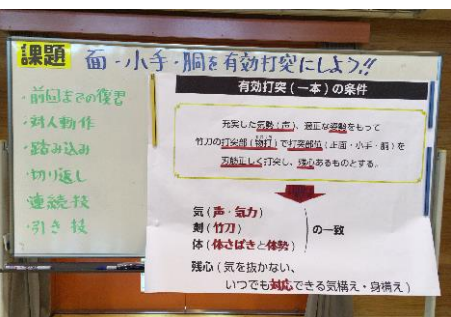 課題 面・小手・胴を有効打突にしよう!!
・前回までの復習
・対人動作
・踏み込み
・切り返し
・連続技
・引き技
有効打突(一本)の条件
充実した気勢(声)、適正な姿勢をもって
竹刀の打突部(物打)で打突部位(正面・小手・胴)を
刃筋正しく打突し、残心あるものとする。
気(声・気力)
剣(竹刀)
体(体さばきと体勢)
の一致
残心(気を抜かない、
いつでも対応できる気構え・身構え)